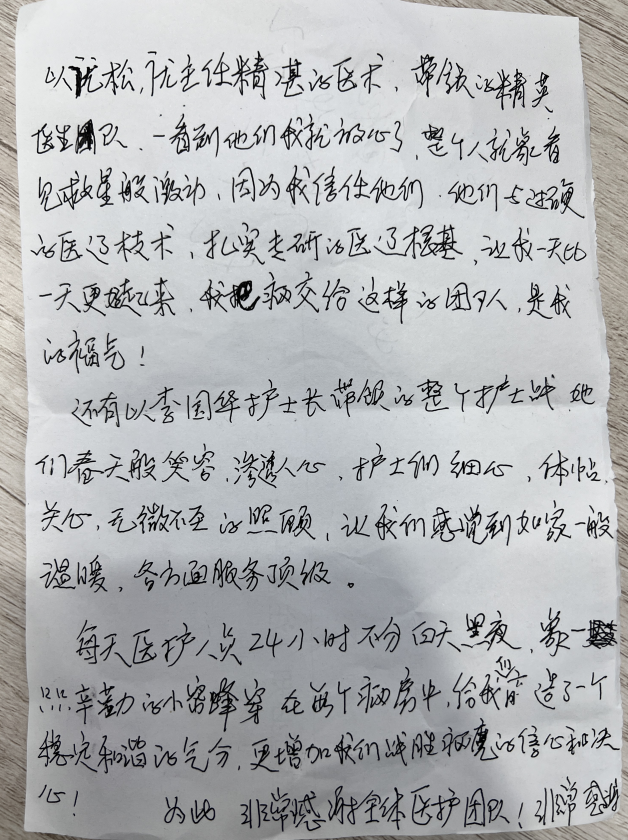 以沈松,沈主任精湛的医术,带领的精英
医生团队,一看到他们我就放心了,整个人就象看
见救星般激动,因为我信任他们,他们占过硬
的医疗技术,扎实专研的医疗根基,让我一天比
一天更健起来,我把病交给这样的团队人,是我
的福气!
还有以李国华护士长带领的整个护士战,她
们春天般笑容,渗透人心,护士们细心,体贴,
关心,无微不至的照顾,让我们感觉到如家一般
温暖,各方面服务顶级。
每天医护人员24小时不分白天黑夜,象一
只只辛勤的小蜜蜂穿在每个病房中,给我们造了一个
稳定和谐的气分,更增加我们战胜病魔的信心和决
心!
为此 非常感谢全体医护团队!非常感谢